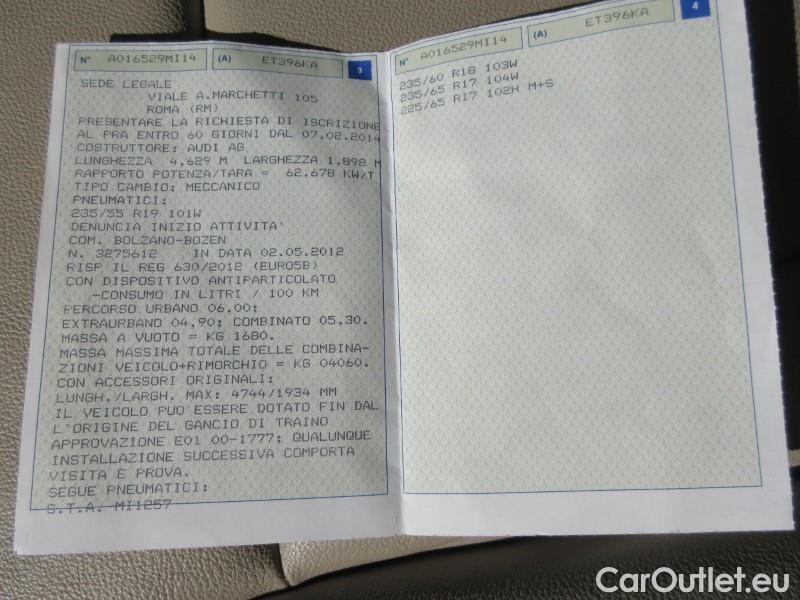 N° A016529MI14 (A) ET396KA 3
SEDE LEGALE
VIALE A.MARCHETTI 105
ROMA (RM)
PRESENTARE LA RICHIESTA DI ISCRIZIONE
AL PRA ENTRO 60 GIORNI DAL 07.02.2014
COSTRUTTORE: AUDI AG
LUNGHEZZA 4,629 M LARGHEZZA 1,898 M
RAPPORTO POTENZA/TARA = 62,678 KW/T
TIPO CAMBIO: MECCANICO
PNEUMATICI:
235/55 R19 101W
DENUNCIA INIZIO ATTIVITA'
COM. BOLZANO-BOZEN
N. 3275612 IN DATA 02.05.2012
RISP IL REG 630/2012 (EURO5B)
CON DISPOSITIVO ANTIPARTICOLATO
-CONSUMO IN LITRI / 100 KM
PERCORSO URBANO 06,00;
EXTRAURBANO 04,90; COMBINATO 05,30.
MASSA A VUOTO = KG 1680.
MASSA MASSIMA TOTALE DELLE COMBINA-
ZIONI VEICOLO+RIMORCHIO = KG 04060.
CON ACCESSORI ORIGINALI:
LUNGH./LARGH. MAX: 4744/1934 MM
IL VEICOLO PUO'ESSERE DOTATO FIN DAL
L'ORIGINE DEL GANCIO DI TRAINO
APPROVAZIONE E01 00-1777; QUALUNQUE
INSTALLAZIONE SUCCESSIVA COMPORTA
VISITA E PROVA.
SEGUE PNEUMATICI:
S.T.A. MI1257
N° A016529MI14 (A) ET396KA 4
235/60 R18 103W
235/65 R17 104W
225/65 R17 102H M+S
CarOutlet.eu